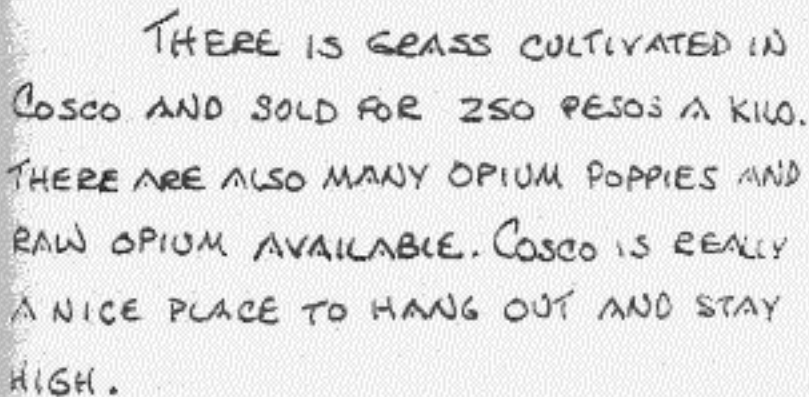 THERE IS GRASS CULTIVATED IN
COSCO AND SOLD FOR 250 PESOS A KILO.
THERE ARE ALSO MANY OPIUM POPPIES AND
RAW OPIUM AVAILABLE. COSCO IS REALLY
A NICE PLACE TO HANG OUT AND STAY
HIGH.